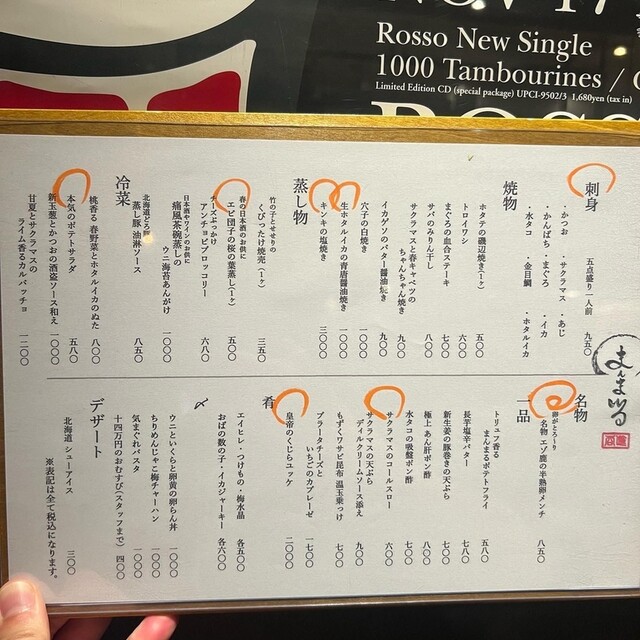 NOV 17
Rosso New Single
1000 Tambourines /
Limited Edition CD (special package) UPCI-9502/3 1,680yen (tax in)
刺身
五点盛り一人前 九五〇
・かつお ・サクラマス ・あじ
・かんぱち ・まぐろ ・イカ
・水タコ ・金目鯛 ・ホタルイカ
焼物
ホタテの磯辺焼き(1ヶ) 五〇〇
トロイワシ 六〇〇
まぐろの血合ステーキ 七〇〇
サバのみりん干し 八〇〇
サクラマスと春キャベツの
ちゃんちゃん焼き 九〇〇
イカゲソのバター醤油焼き 九〇〇
穴子の白焼き 一〇〇〇
生ホタルイカの青唐醤油焼き 一〇〇〇
キンキの塩焼き 三〇〇〇
蒸し物
竹の子とせせりの
くびったけ焼売(1ヶ) 三五〇
春の日本酒のお供に
エビ団子の桜の葉蒸し(1ヶ) 五〇〇
チーズぶっかけ
アンチョビブロッコリー 六八〇
日本酒やワインのお供に
痛風茶碗蒸しの
ウニ海苔あんかけ 一〇〇〇
蒸し豚 油淋ソース 八五〇
冷菜
桃香る 春野菜とホタルイカのぬた 八〇〇
本気のポテトサラダ 五八〇
新玉葱とかつおの酒盗ソース和え 一〇〇〇
甘夏とサクラマスの
ライム香るカルパッチョ 一二〇〇
まんまいる
名物
卵がとろ〜り
名物 エゾ鹿の半熟卵メンチ 八五〇
一品
トリュフ香る
まんまるポテトフライ 五八〇
長芋塩辛バター 七八〇
新生姜の豚巻きの天ぷら 七〇〇
極上 あん肝ポン酢 八〇〇
水タコの吸盤ポン酢 七〇〇
サクラマスのコールスロー 六〇〇
サクラマスの天ぷら
ディルクリームソース添え 九〇〇
もずくワサビ昆布 温玉乗っけ 七〇〇
ブラータチーズと
いちごのカプレーゼ 一七〇〇
皇帝のくじらユッケ 二〇〇〇
肴
エイヒレ・つけもの・梅水晶 各五〇〇
おばの数の子・イカジャーキー 各六〇〇
〆
ウニといくらと卵黄の卵らん丼 一〇〇〇
ちりめんじゃこ梅チャーハン 一〇〇〇
気まぐれパスタ 一〇〇〇
十四万円のおむすび(スタッフまで) 四〇〇
デザート
北海道 シューアイス 三〇〇
※表記は全て税込になります。